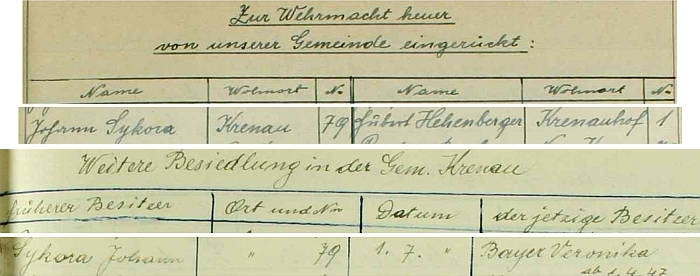 Zur Wehrmacht heuer
von unserer Gemeinde eingerückt:
Name Wohnort № Name Wohnort №
Johann Sykora Krenau 79 Hubert Hehenberger Krenauhof 1
Weitere Besiedlung in der Gem. Krenau
früherer Besitzer Ort und Nr Datum der jetzige Besitzer
Sykora Johann " 79 1. 7. " Bayer Veronika
ab 2. 4. 47